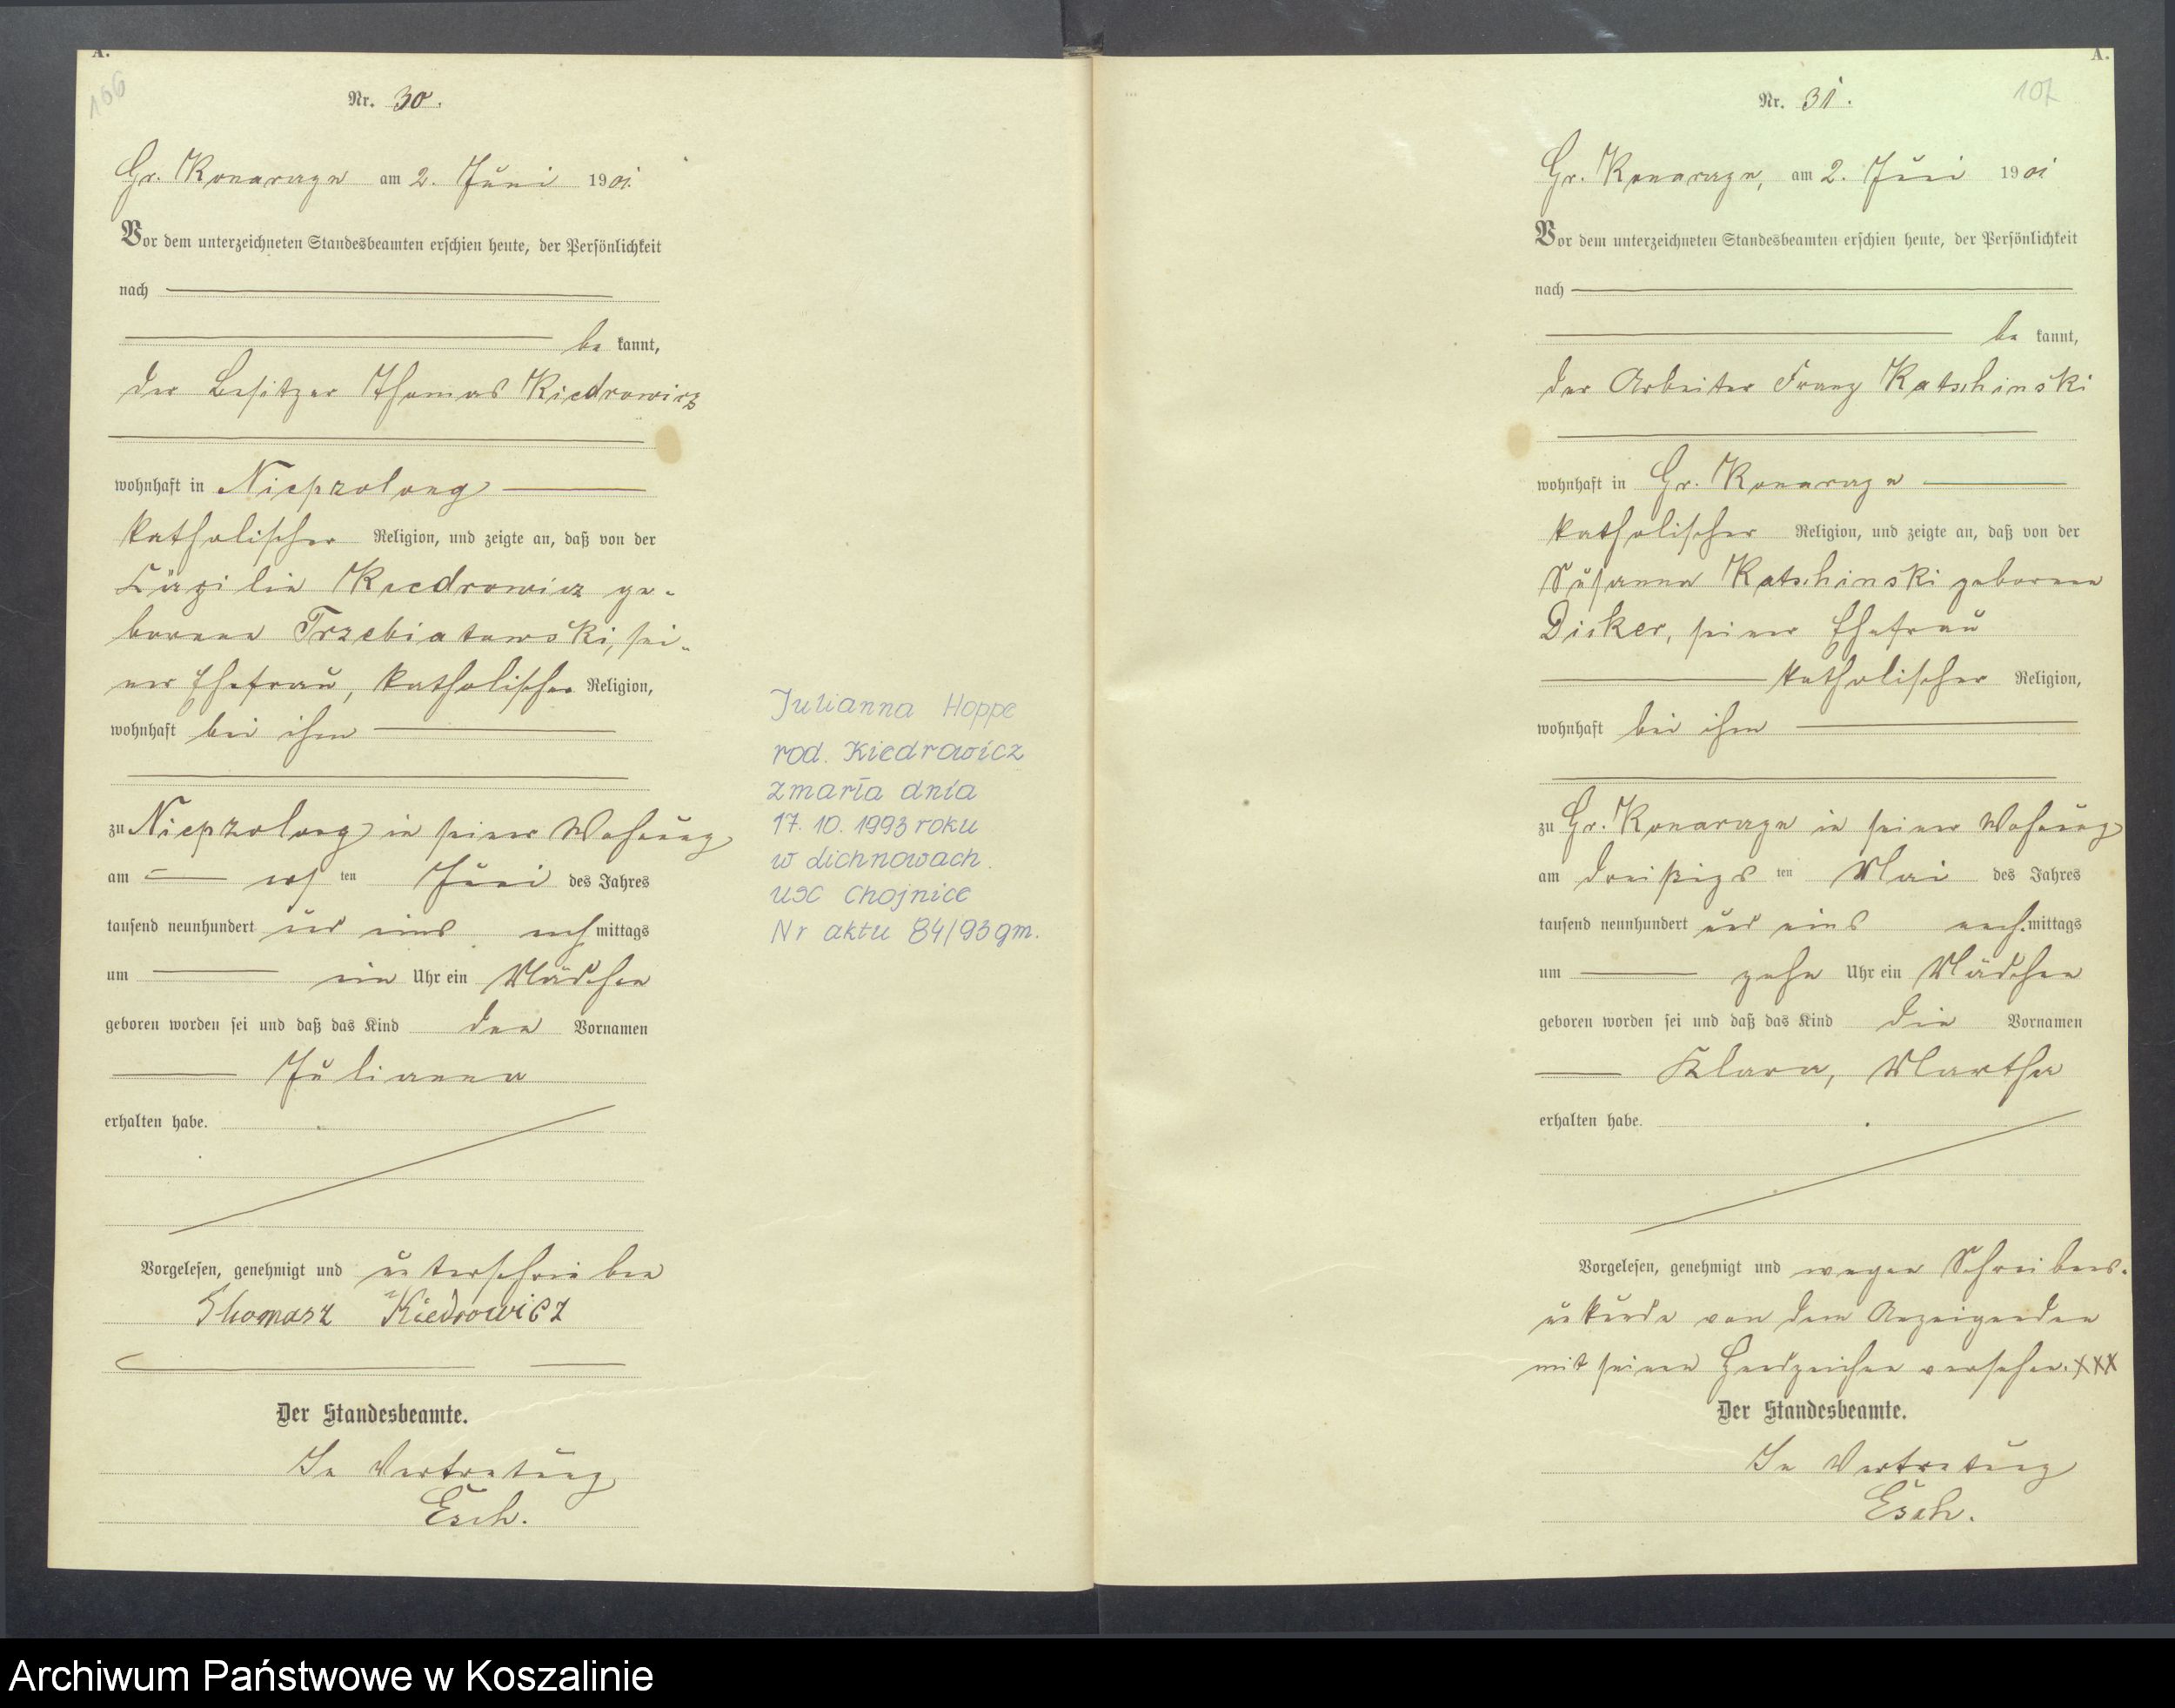 A.
106
Nr. 30.
Gr. Konarzyn am 2. Juni 1901.
Vor dem unterzeichneten Standesbeamten erschien heute, der Persönlichkeit
nach
be kannt,
der Besitzer Thomas Kiedrowicz
wohnhaft in Niepzolong
katholischer Religion, und zeigte an, daß von der
Cäzilie Kiedrowicz ge-
borene Trzebiatowski, sei-
ner Ehefrau, katholischer Religion,
wohnhaft bei ihm
zu Niepzolong in seiner Wohnung
am ersten Juni des Jahres
tausend neunhundert und eins nachmittags
um ein Uhr ein Mädchen
geboren worden sei und daß das Kind den Vornamen
Julianna
erhalten habe.
Vorgelesen, genehmigt und unterschrieben
Thomasz Kiedrowicz
Der Standesbeamte.
In Vertretung
Esch.
Julianna Hoppe
rod. Kiedrowicz
zmarła dnia
17. 10. 1993 roku
w Lichnowach.
USC Chojnice
Nr aktu 84/93 gm.
A.
107
Nr. 31.
Gr. Konarzyn, am 2. Juni 1901
Vor dem unterzeichneten Standesbeamten erschien heute, der Persönlichkeit
nach
be kannt,
der Arbeiter Franz Katschinski
wohnhaft in Gr. Konarzyn
katholischer Religion, und zeigte an, daß von der
Susanna Katschinski geborene
Disker, seiner Ehefrau
katholischer Religion,
wohnhaft bei ihm
zu Gr. Konarzyn in seiner Wohnung
am dreißigsten Mai des Jahres
tausend neunhundert und eins nach.mittags
um zehn Uhr ein Mädchen
geboren worden sei und daß das Kind die Vornamen
Klara, Martha
erhalten habe.
Vorgelesen, genehmigt und wegen Schreibens-
unkunde von dem Anzeigenden
mit seinen Handzeichen versehen. XXX
Der Standesbeamte.
In Vertretung
Esch.
Archiwum Państwowe w Koszalinie